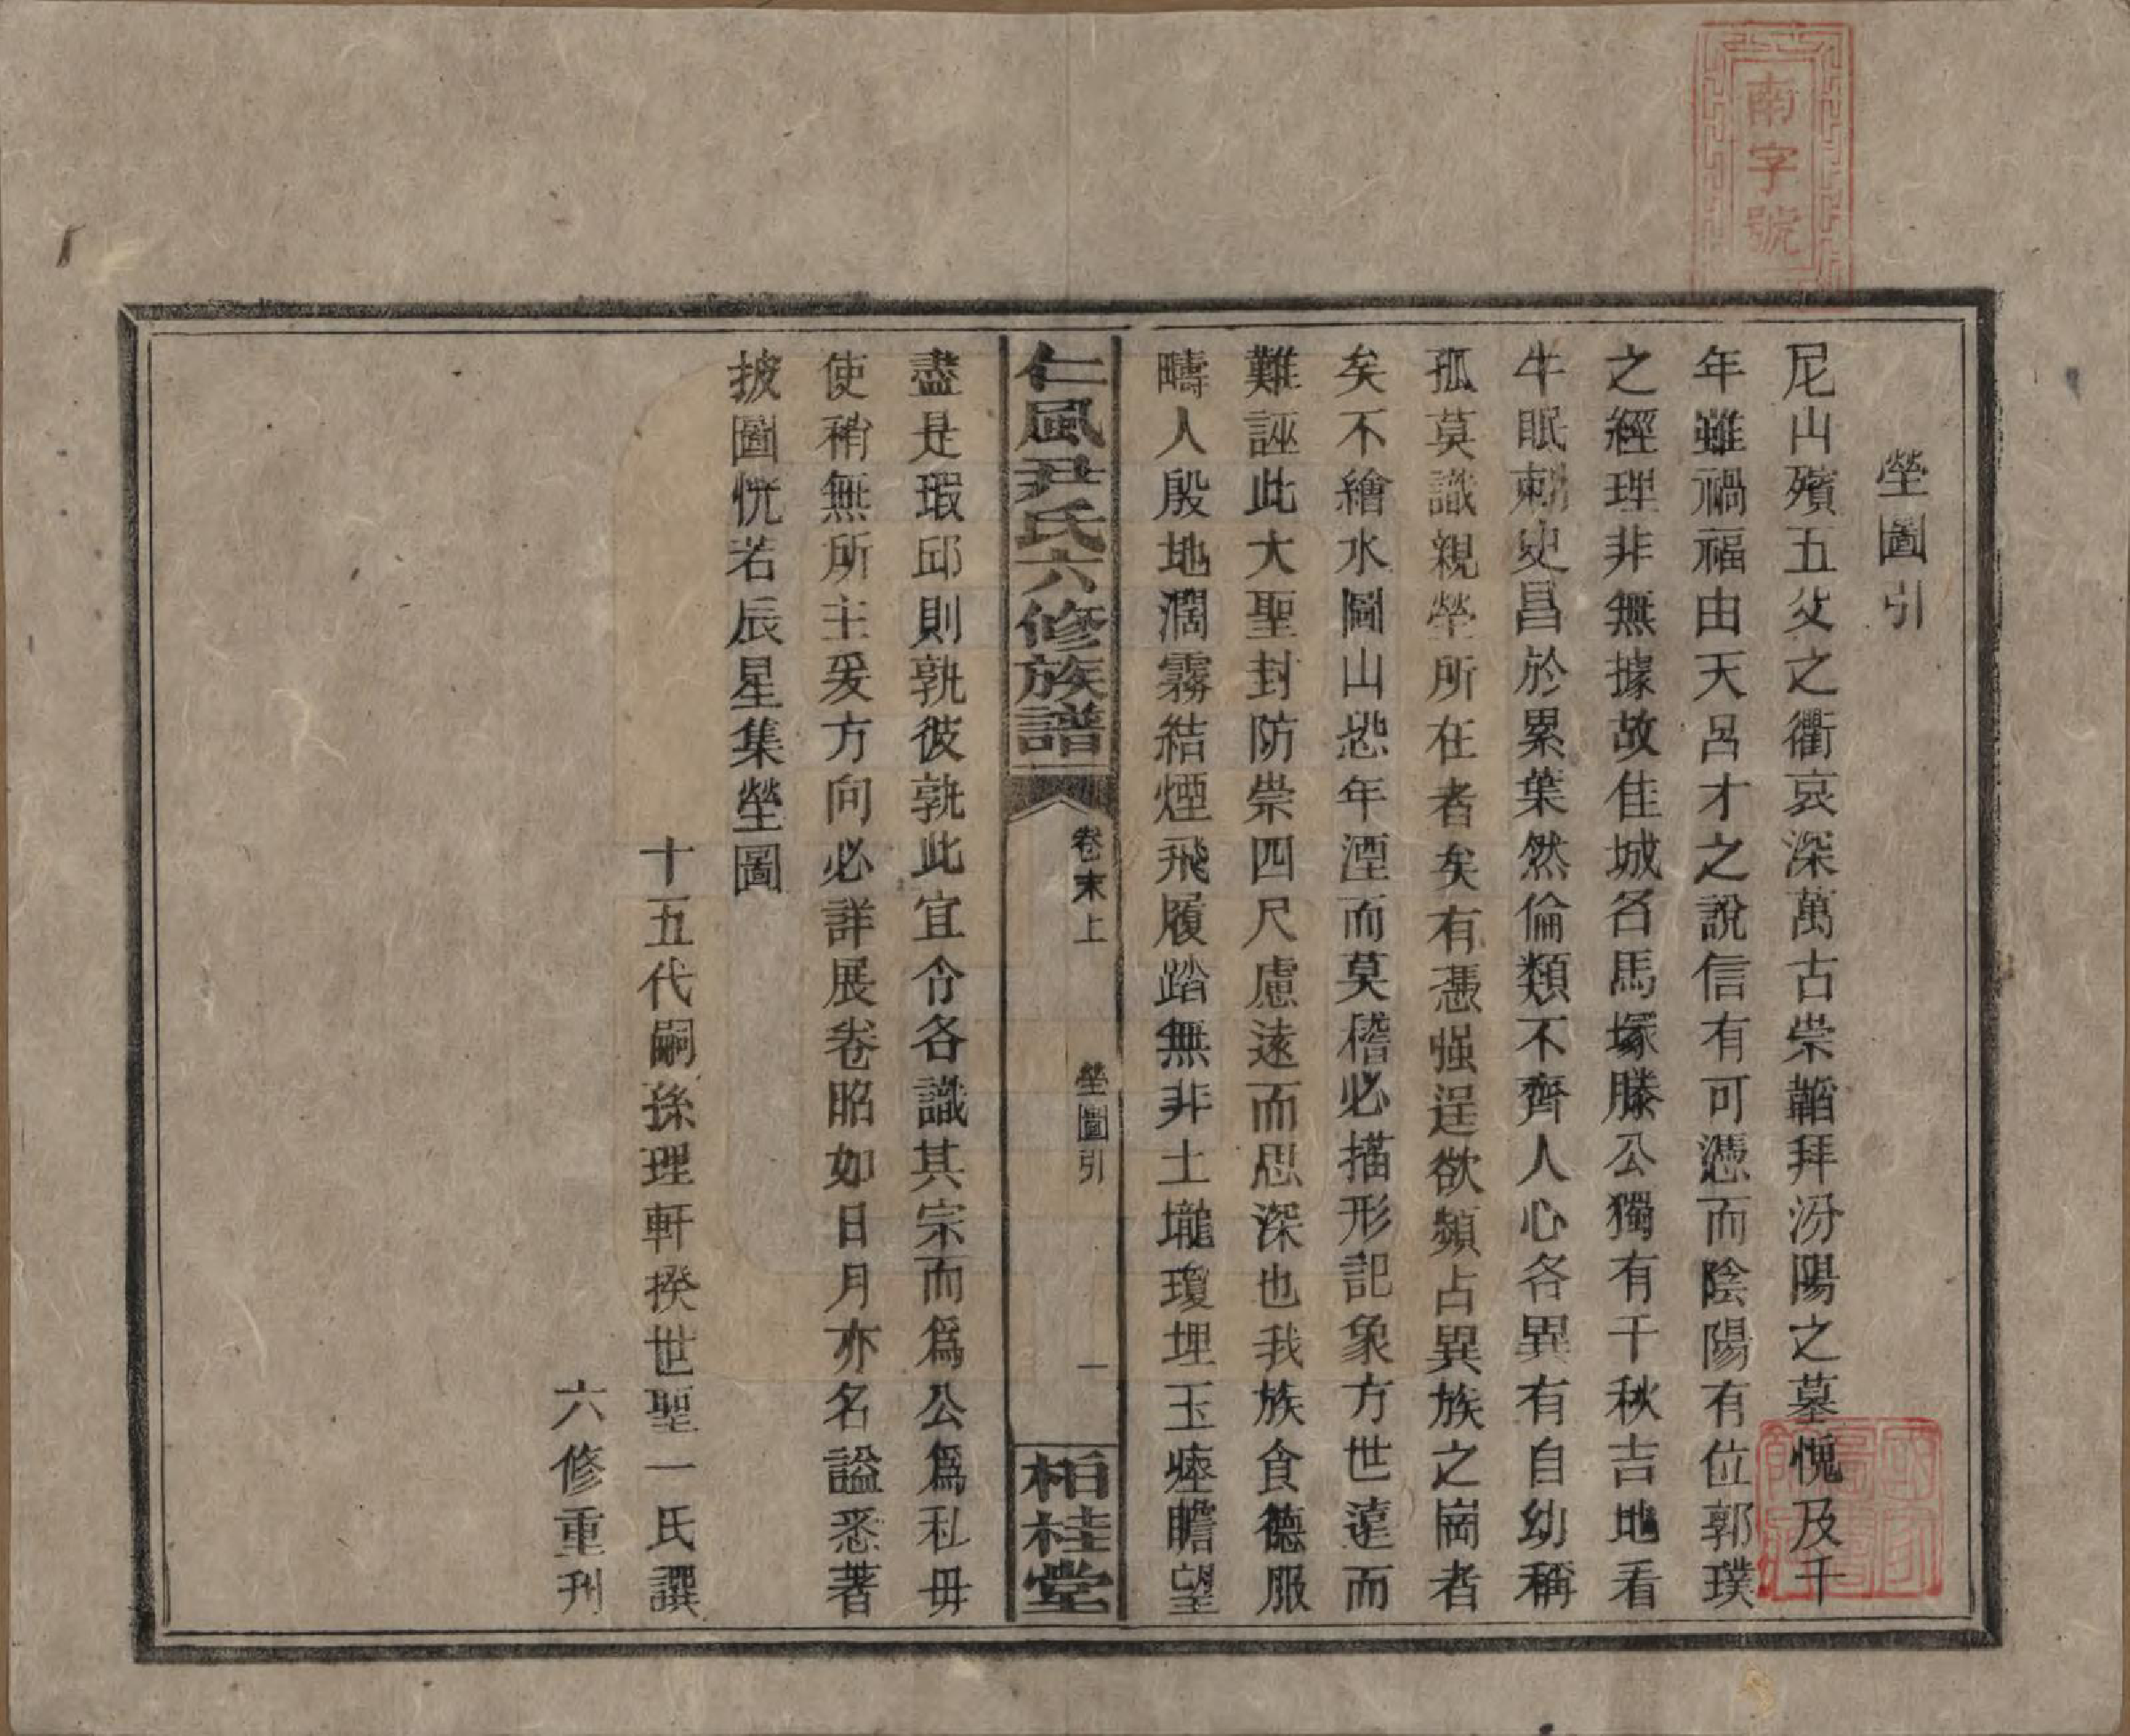 南字號
塋圖引
尼山殯五父之衢哀深萬古崇韜拜汾陽之墓愧及千
年雖禍福由天呂才之說信有可憑而陰陽有位郭璞
之經理非無據故佳城名馬塚滕公獨有千秋吉地看
牛眠刺史昌於累葉然倫類不齊人心各異有自幼稱
孤莫識親塋所在者矣有憑强逞欲頻占異族之崗者
矣不繪水圖山恐年湮而莫稽必描形記象方世遠而
難誣此大聖封防崇四尺慮遠而思深也我族食德服
疇人殷地濶霧結煙飛履踏無非土壠瓊埋玉瘞瞻望
仁風尹氏六修族譜
卷末上
塋圖引
一
栢桂堂
盡是瑕邱則孰彼孰此宜令各識其宗而爲公爲私毋
使稍無所主爰方向必詳展卷昭如日月亦名謚悉著
披圖恍若辰星集塋圖
十五代嗣孫理軒揆世聖一氏譔
六修重刊